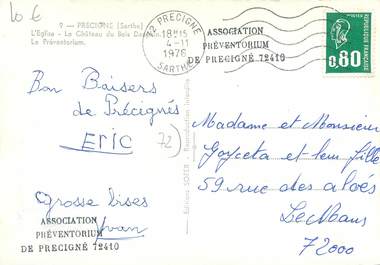 10 €
9 - PRECIGNE (Sarthe)
L'Eglise - Le Château du Bois
Le Préventorium.
72 PRECIGNE
18H15
4-11
1976
SARTHE
ASSOCIATION
PRÉVENTORIUM
DE PRECIGNÉ 72410
0,80
Bon Baisers
de Précignés
ERIC
72
Grosse bises
Yvan
ASSOCIATION
PRÉVENTORIUM
DE PRECIGNÉ 72410
Editions SOFER - Reproduction interdite
Madame et Monsieur
et leur fille
59 rue des aloés
Le Mans
72000